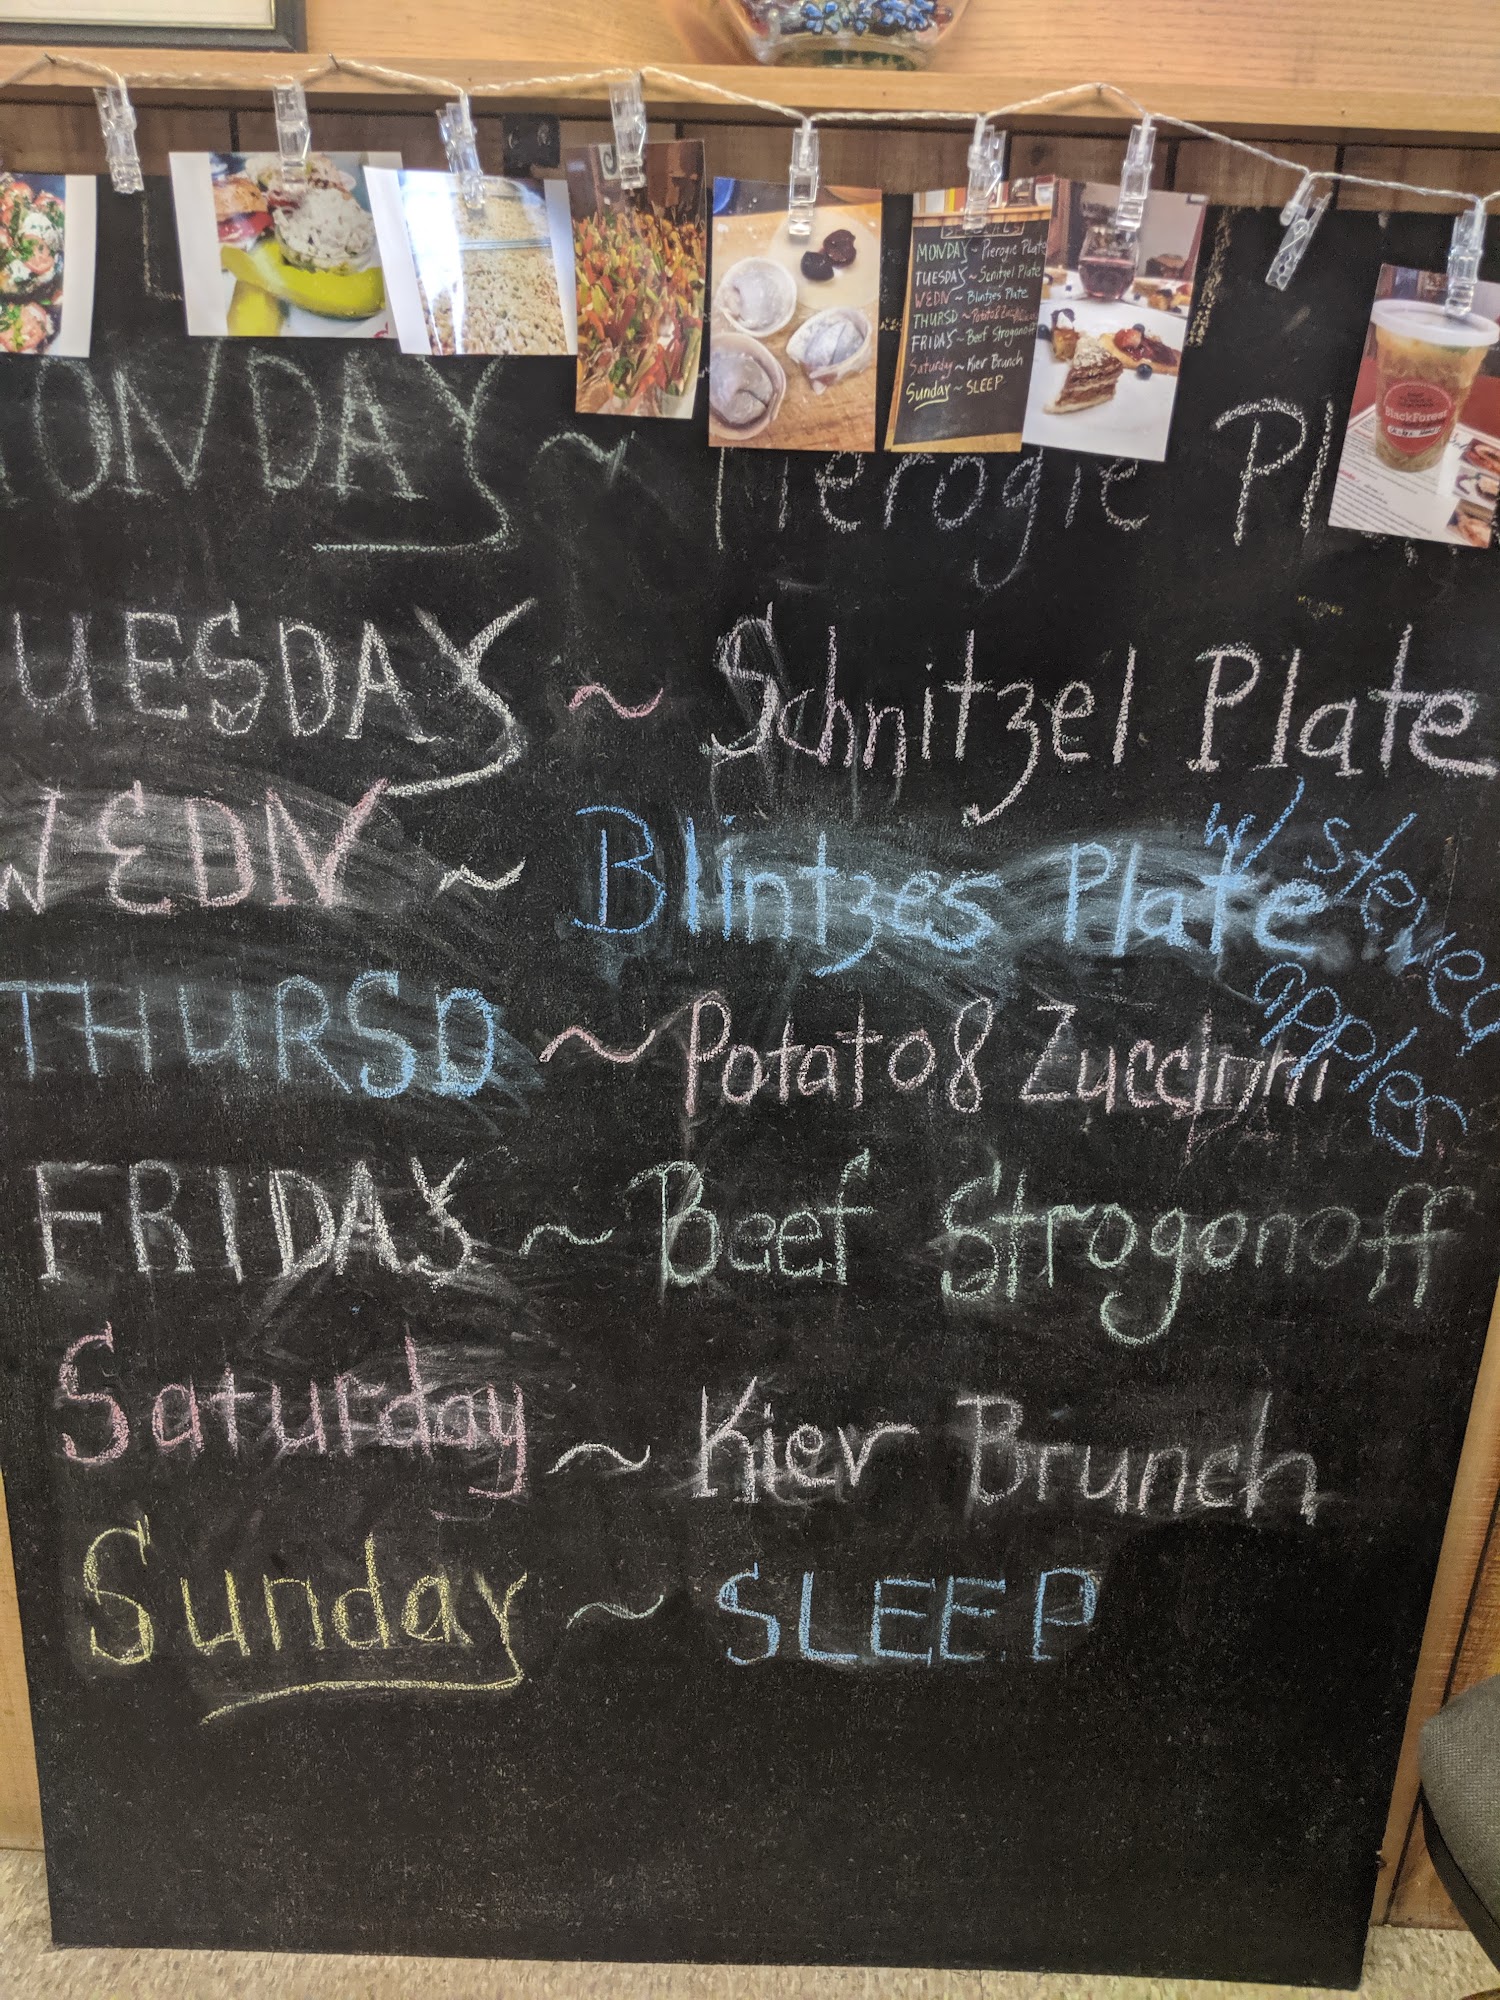 SPECIALS
MONDAY ~ Pierogie Plate
TUESDAY ~ Schnitzel Plate
WEDN ~ Blintzes Plate
THURSD ~ Potato &
FRIDAY ~ Beef Strogonoff
Saturday ~ Kier Brunch
Sunday ~ SLEEP
BlackForest
ONDAY ~ Pierogie Pl
UESDAY ~ Schnitzel Plate
WEDN ~ Blintzes Plate w/ stewed
apples
THURSD ~ Potato & Zucchini
FRIDAY ~ Beef Strogonoff
Saturday ~ Kiev Brunch
Sunday ~ SLEEP